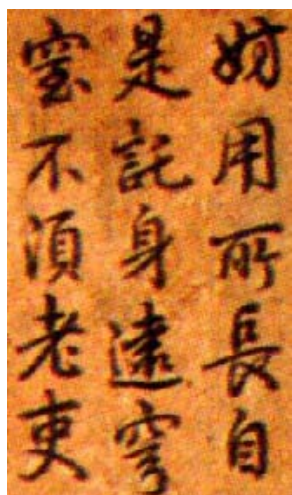 妨用所長自
是託身遠穹
窒不須老吏